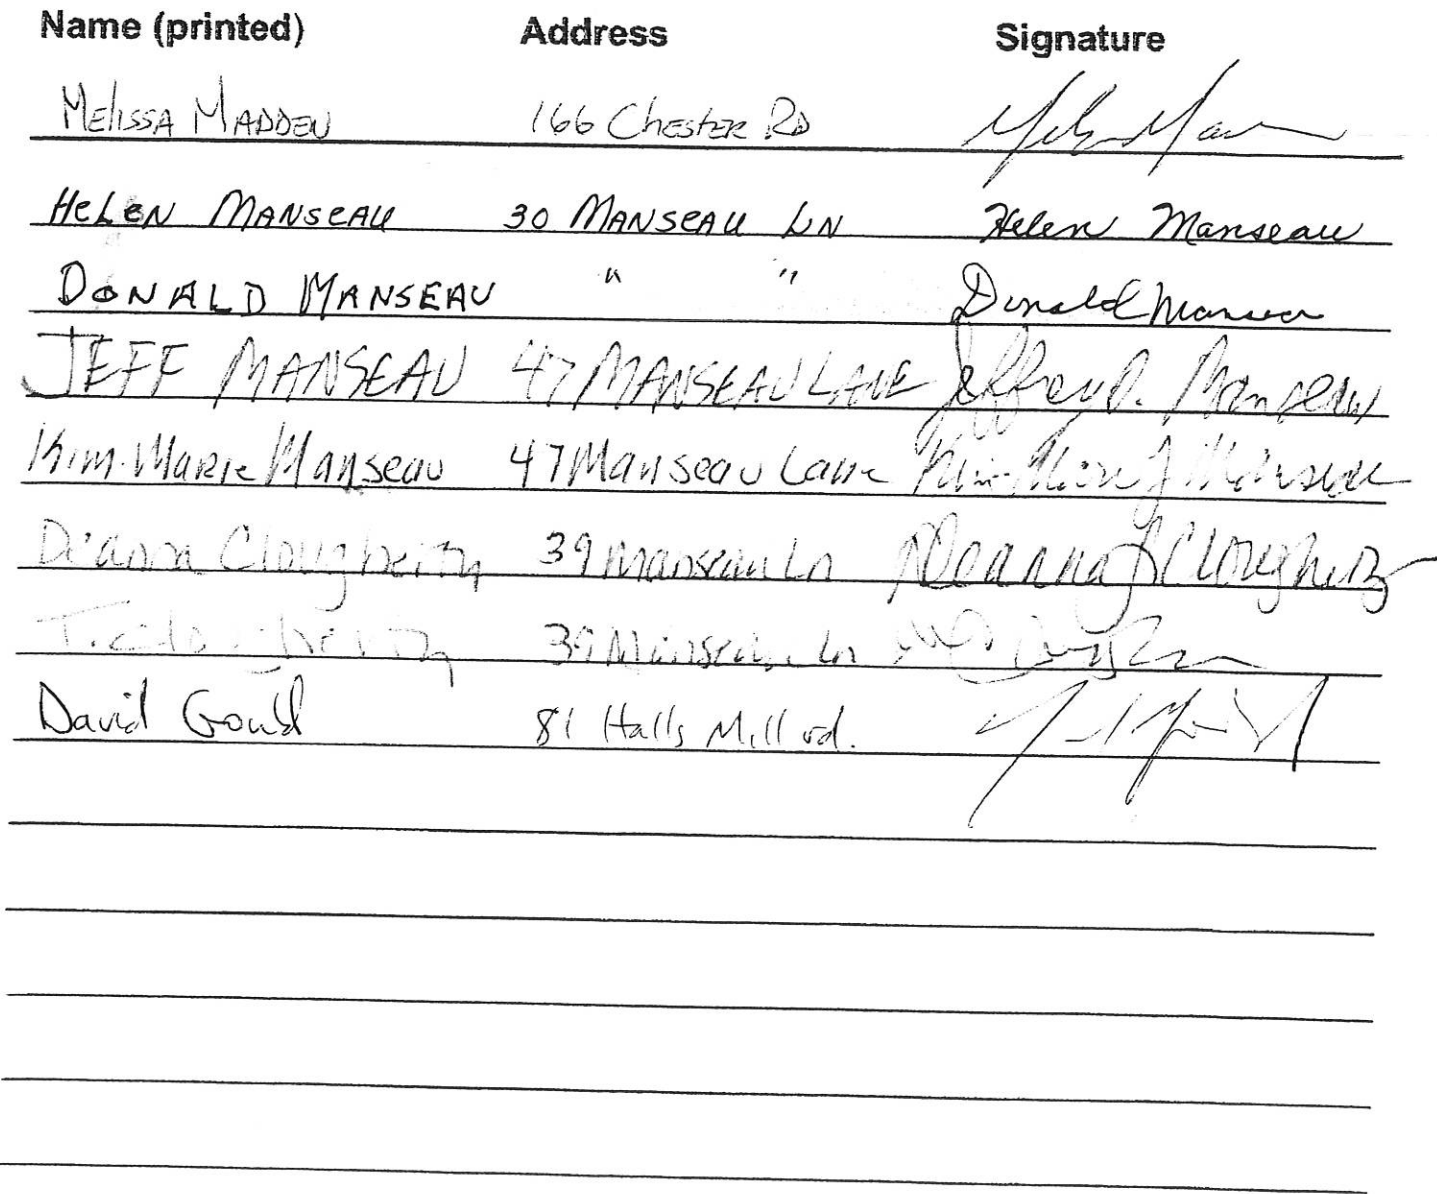 Name (printed) Address Signature
MELISSA MADDEN 166 CHESTER RD
HELEN MANSEAU 30 MANSEAU LN Helen Manseau
DONALD MANSEAU " " Donald Manseau
JEFF MANSEAU 47 MANSEAU LANE Jeffrey D. Manseau
Kim-Marie Manseau 47 Manseau Lane Kim-Marie J Manseau
Deanna Clougherty 39 Manseau Ln Deanna J Clougherty
T. Clougherty 39 Manseau Ln
David Gould 81 Halls Mill rd.